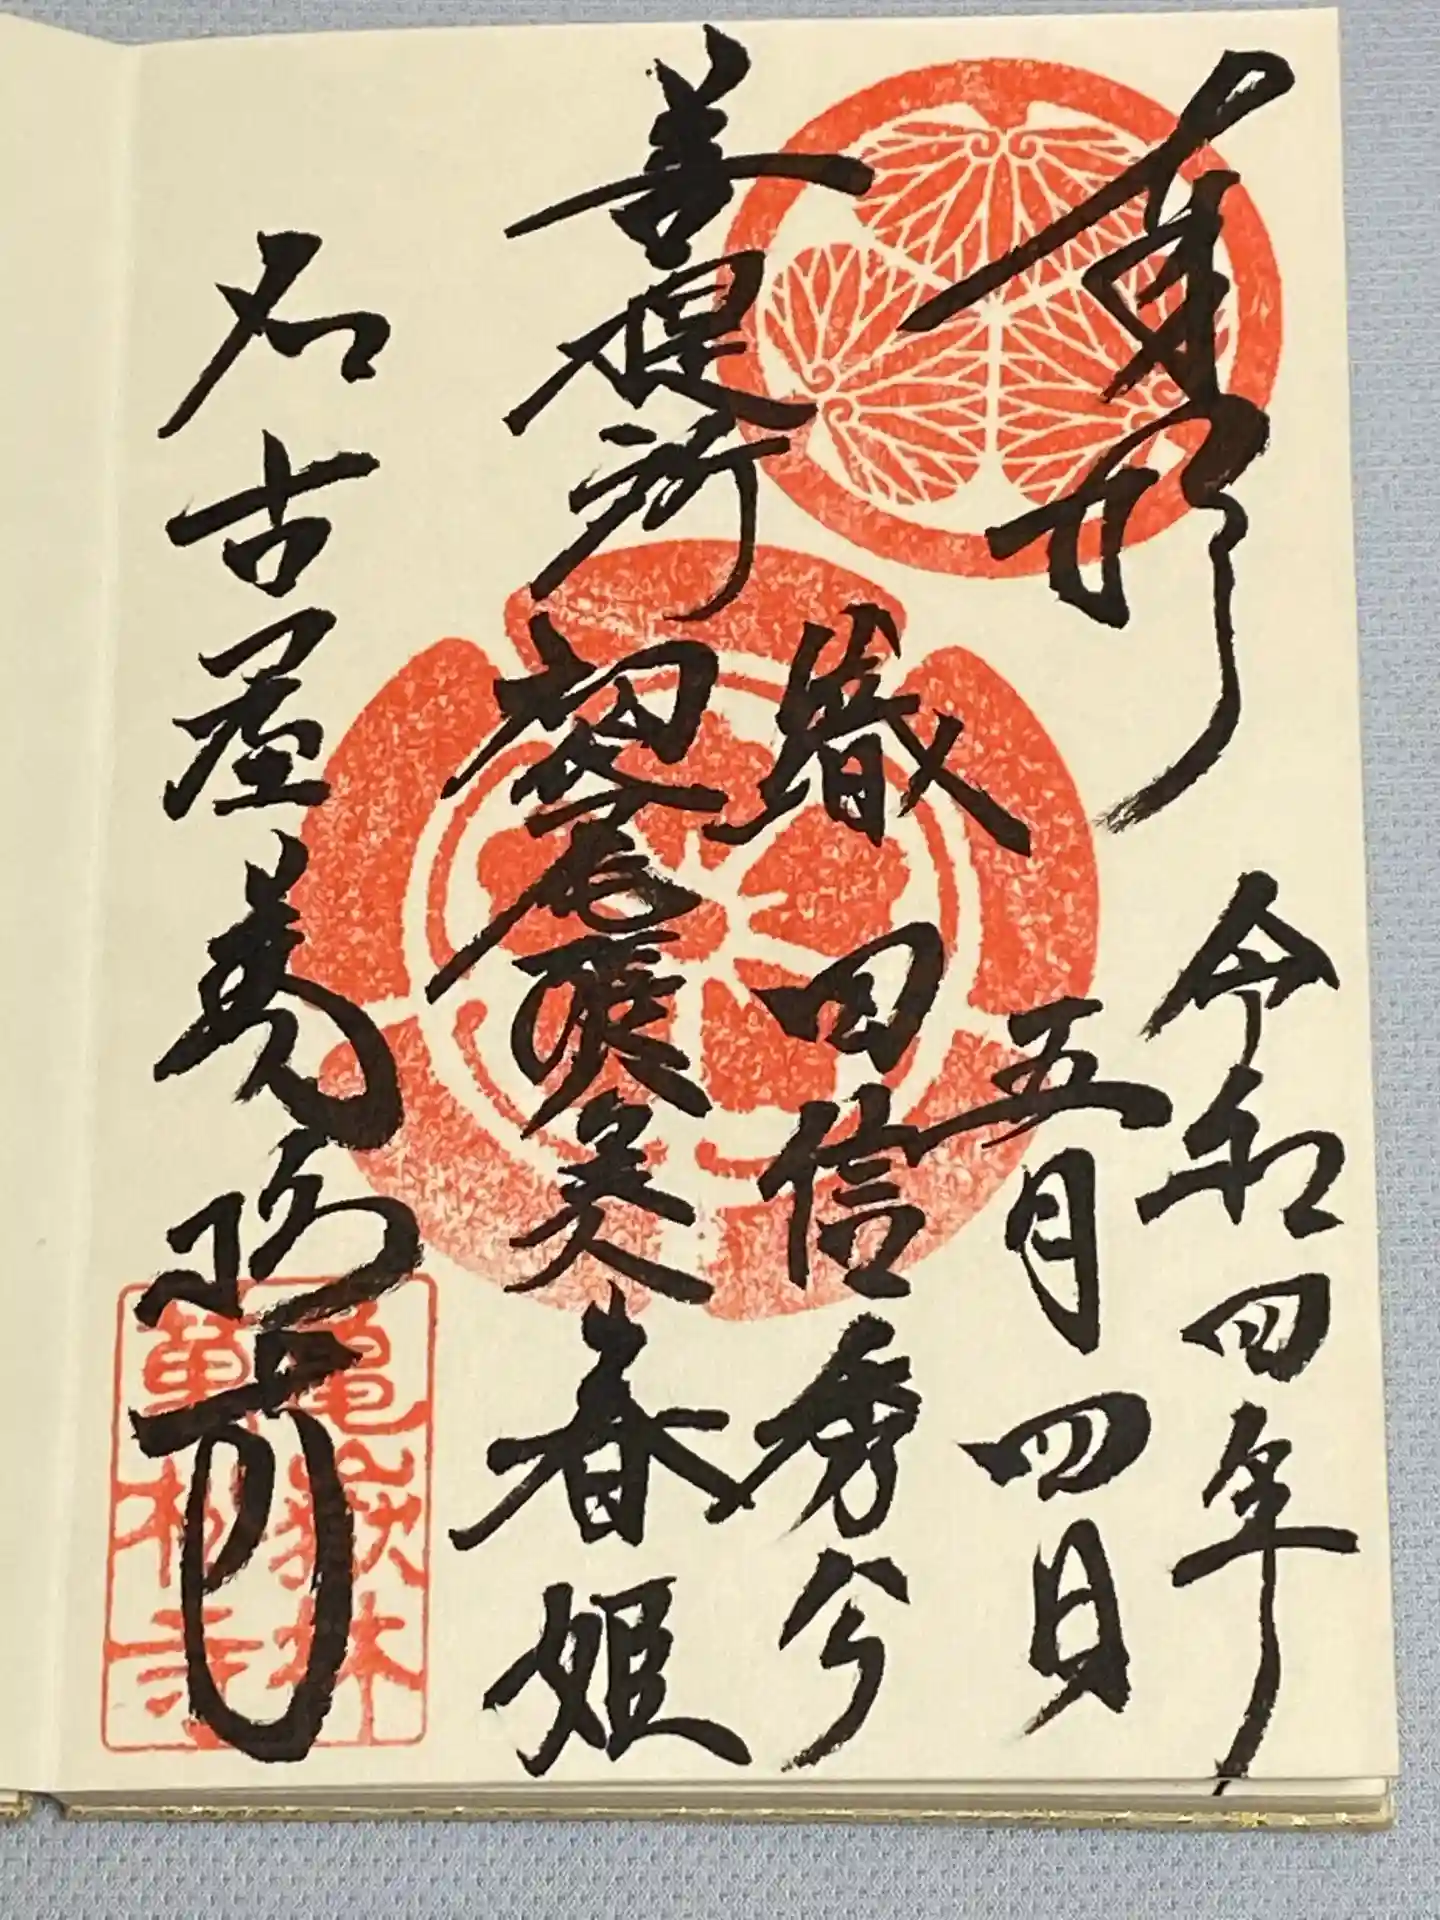 奉拝
令和四年
五月四日
織田信秀公
菩提所
尾張
夫人春姫
名古屋萬松寺
亀嶽林
萬松寺